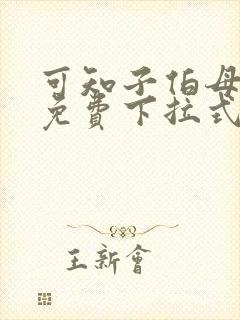 可知子伯母
免費下拉式
王新會